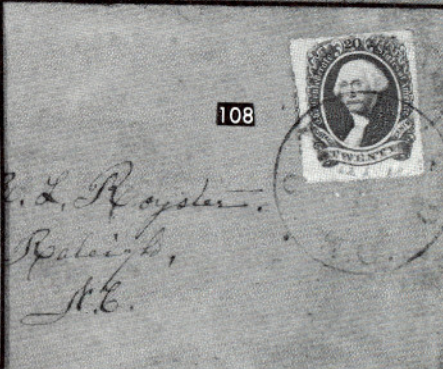 20
108
TWENTY
L. Royster.
Raleigh,
N.C.